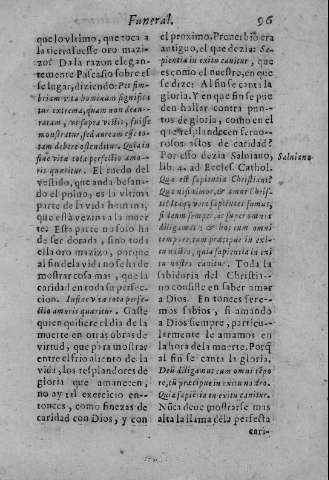 Funeral. 96
que lo vltimo, que toca a
la tierra fuesse oro mazi-
zo? Da la razon elegan-
temente Pascasio sobre es
se lugar, diziendo: Per fim-
briam vita hominum significa
tur extrema, quam non deau-
ratam, vt supra vestis, fuisse
monstratur, sed auream esse to-
tam debere ostenditur. Quia in
fine vita tota perfectio amo-
ris quaritur. El ruedo del
vestido, que anda besan-
do el poluo, es la vltima
parte de la vida humana,
que està vezina a la muer
te. Esta parte no solo ha
de ser dorada, sino toda
ella oro mazizo, porque
al fin de la vida no se ha de
mostrar cosa mas, que la
caridad en toda su perfec-
cion. In fine vita tota perfe-
ctio amoris quaritur. Gaste
quien quisiere el dia de la
muerte en otras obras de
virtud, que para mostrar
entre el frio aliento de la
vida, los resplandores de
gloria que amanecen,
no ay tal exercicio en-
tonces, como finezas de
caridad con Dios, y con
el proximo. Prouerbio era
antiguo, el que dezia: Sa-
pientia in exitu canitur, que
es como el nuestro, en que
se dize: Al fin se canta la
gloria. Y en que fin se pue
den hallar contra pun-
tos de gloria, como en el
que resplandecen feruo-
rosos actos de caridad?
Por esso dezia Saluiano, Saluiano
lib. 4. ad Eccles. Cathol.
Qua est sapientia Christiani?
Qua nisi timor, & amor Chris-
ti: Itaq; vere sapientes sumus,
si Deum semper, ac super omnia
diligamus; & hoc cum omni
tempore, tum praecipue in exi-
tu nostro, quia sapientia in exi
tu nostro canitur. Toda la
sabiduria del Christia-
no consiste en saber amar
a Dios. Entonces sere-
mos sabios, si amando
a Dios siempre, particu-
larmente le amamos en
la hora de la muerte. Porq̃
al fin se canta la gloria.
Deũ diligamus cum omni tẽpo-
re, tũ praecipue in exitu nostro.
Quia sapiẽtia in exitu canitur.
Nũca deue mostrarse mas
alta la llama de la perfecta
cari-